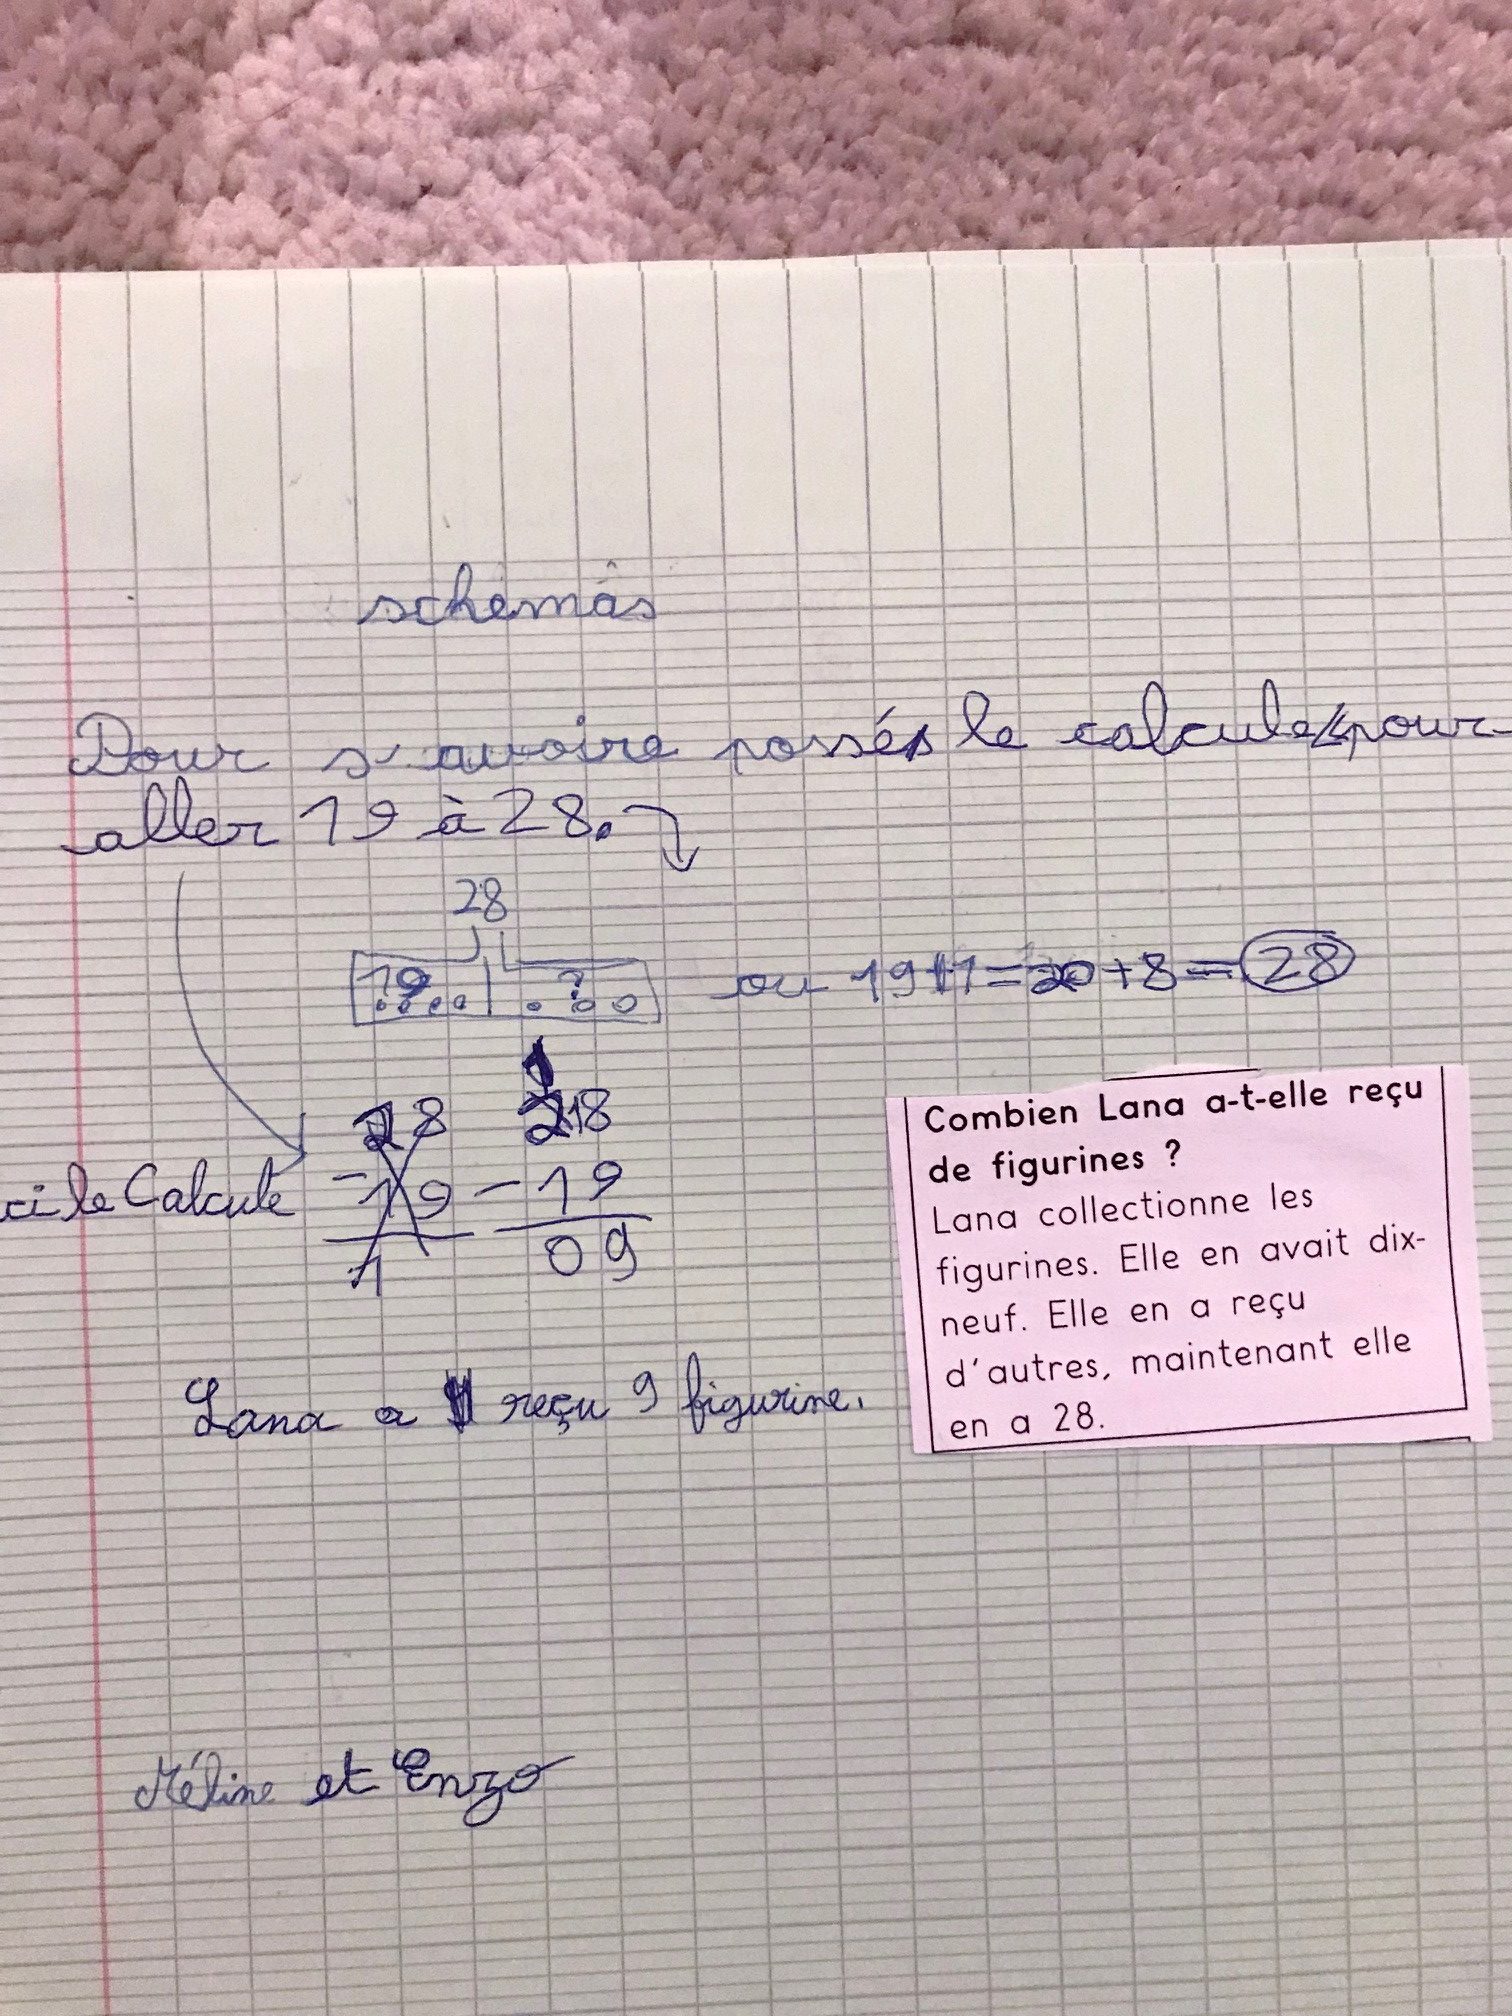 schémas
Pour s'avoire possés le calcule pour
aller 19 à 28.
28
19 ?
ou 19+1=20+8=28
28 218
-19 -19
1 09
ci le Calcule
Combien Lana a-t-elle reçu
de figurines ?
Lana collectionne les
figurines. Elle en avait dix-
neuf. Elle en a reçu
d'autres, maintenant elle
en a 28.
Lana a reçu 9 figurine.
Méline et Enzo